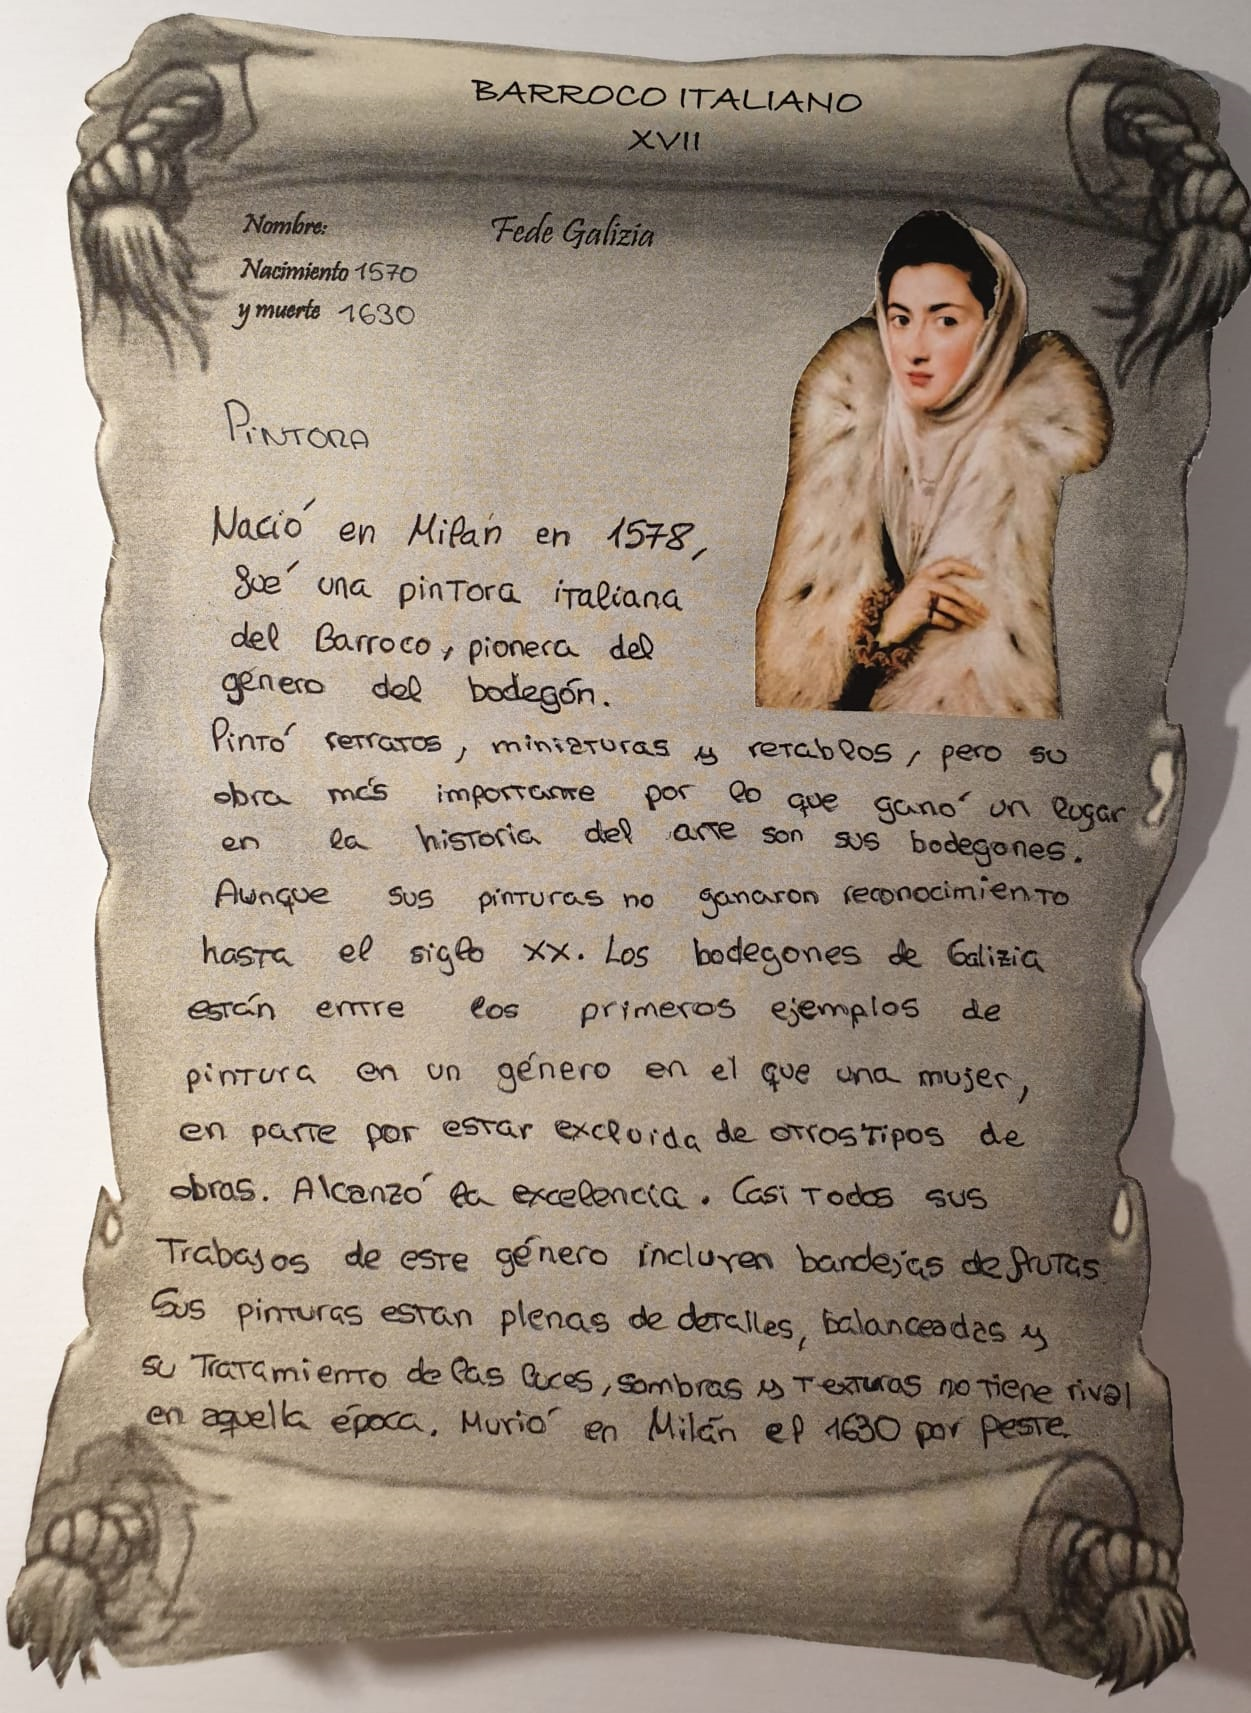 BARROCO ITALIANO
XVII
Nombre: Fede Galizia
Nacimiento 1570
y muerte 1630
PINTORA
Nació en Milán en 1578,
fué una pintora italiana
del Barroco, pionera del
género del bodegón.
Pintó retratos, miniaturas y retablos, pero su
obra más importante por lo que ganó un lugar
en la historia del arte son sus bodegones.
Aunque sus pinturas no ganaron reconocimiento
hasta el siglo XX. Los bodegones de Galizia
están entre los primeros ejemplos de
pintura en un género en el que una mujer,
en parte por estar excluida de otros tipos de
obras. Alcanzó la excelencia. Casi todos sus
Trabajos de este género incluyen bandejas de frutas.
Sus pinturas estan plenas de detalles, balanceadas y
su Tratamiento de las luces, sombras y texturas no tiene rival
en aquella época. Murió en Milán el 1630 por peste.